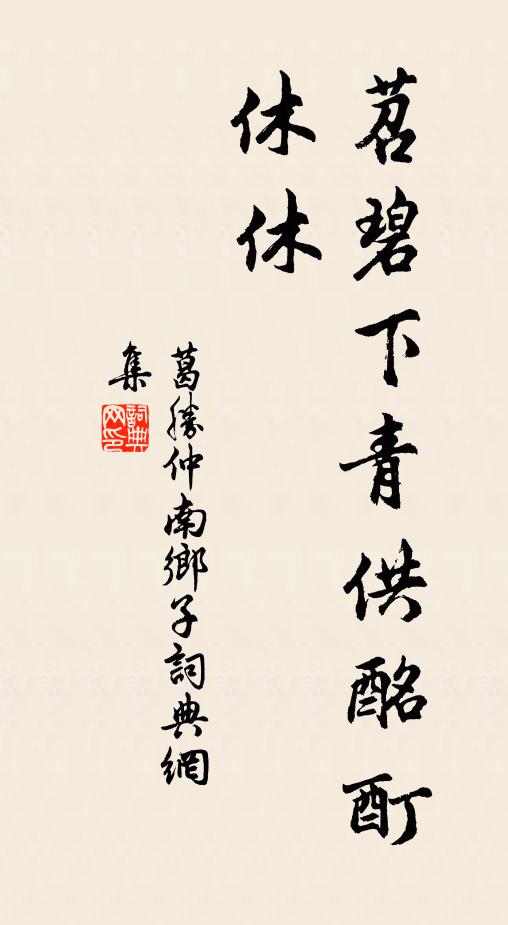 苕碧下青供酩酊
休休
葛勝仲南鄉子詞典網
集
詞典網印